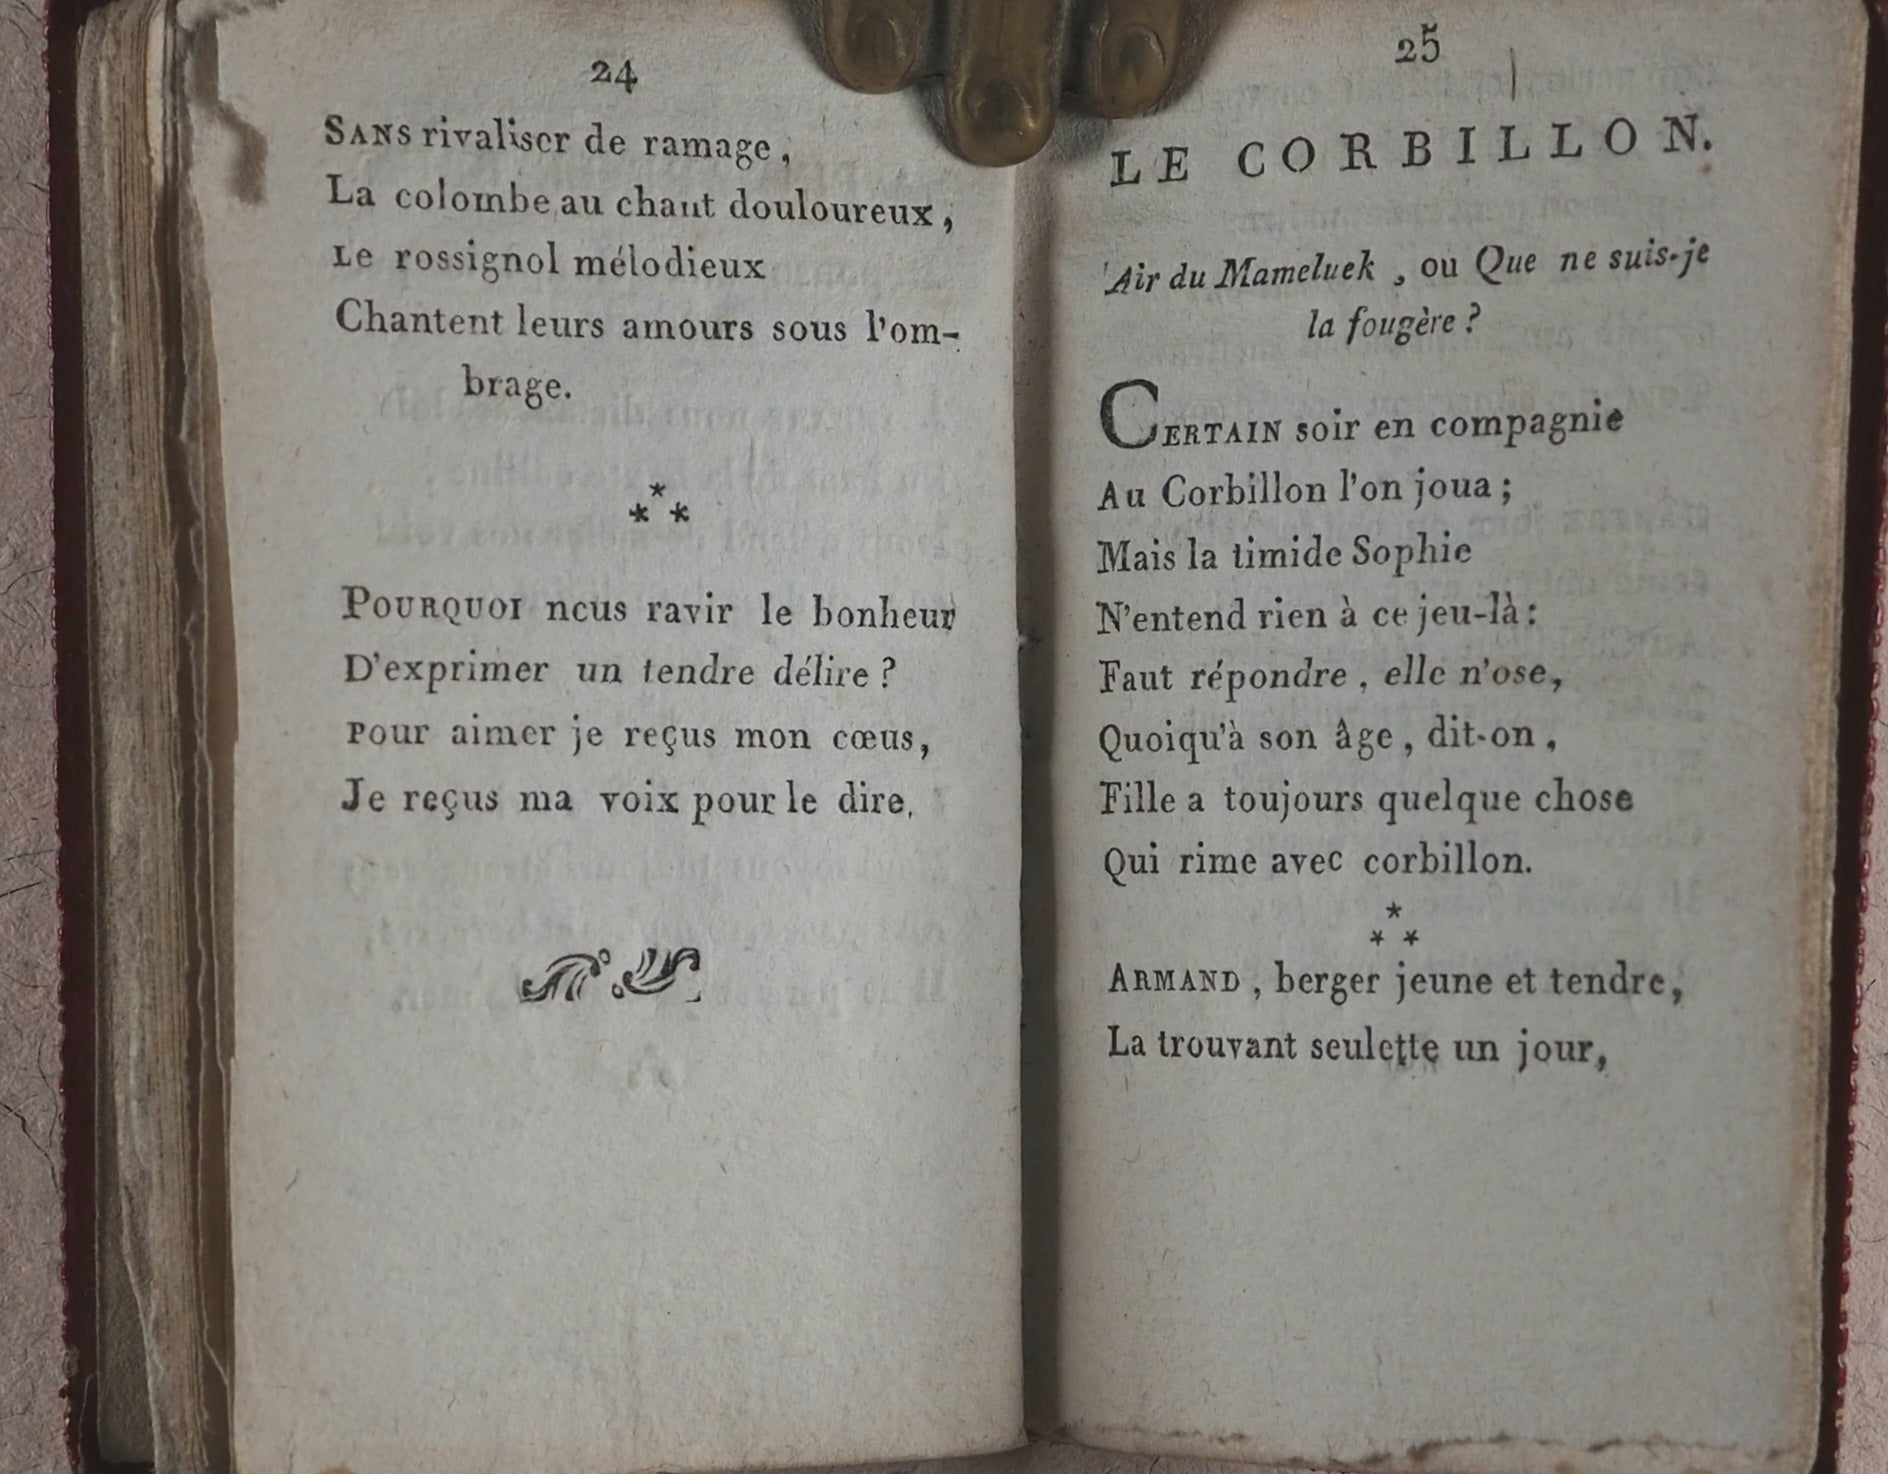 24
SANS rivaliser de ramage,
La colombe au chant douloureux,
Le rossignol mélodieux
Chantent leurs amours sous l'om-
brage.
* * *
POURQUOI ncus ravir le bonheur
D'exprimer un tendre délire ?
Pour aimer je reçus mon cœus,
Je reçus ma voix pour le dire.
25
LE CORBILLON.
Air du Mameluek, ou Que ne suis-je
la fougère ?
CERTAIN soir en compagnie
Au Corbillon l'on joua ;
Mais la timide Sophie
N'entend rien à ce jeu-là :
Faut répondre, elle n'ose,
Quoiqu'à son âge, dit-on,
Fille a toujours quelque chose
Qui rime avec corbillon.
* * *
ARMAND, berger jeune et tendre,
La trouvant seulette un jour,